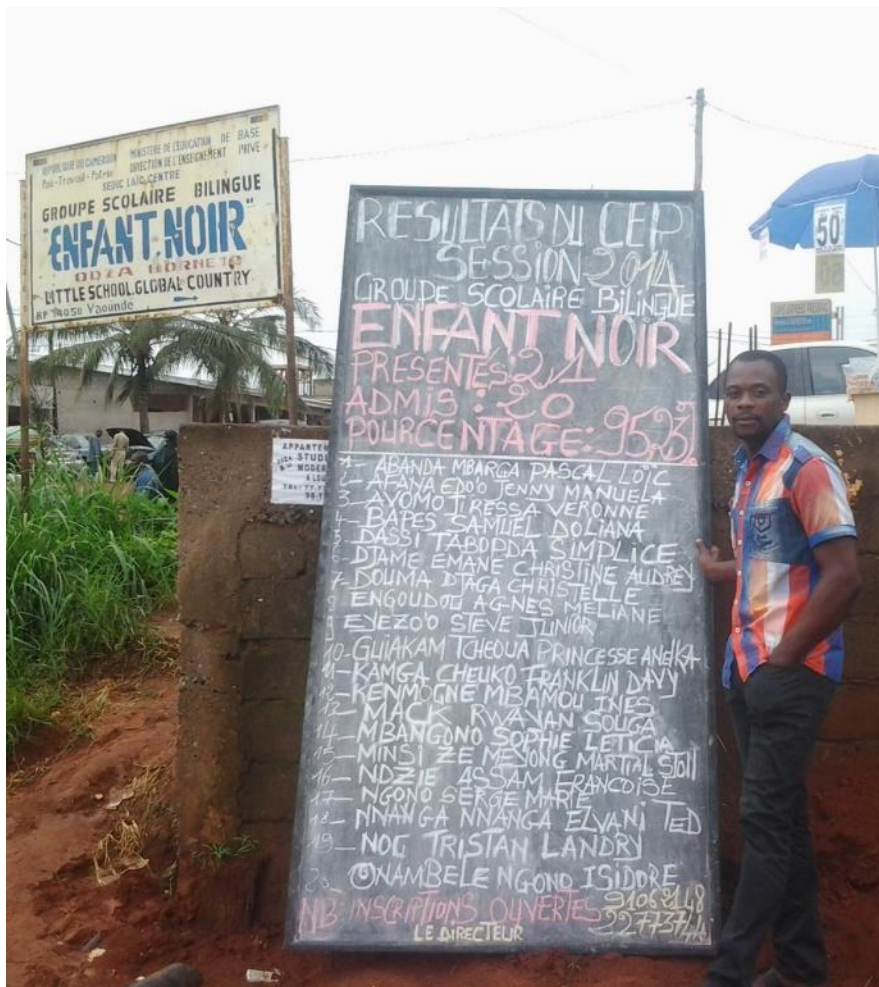 REPUBLIQUE DU CAMEROUN
Paix-Travail-Patrie
MINISTERE DE L'EDUCATION DE BASE
DIRECTION DE L'ENSEIGNEMENT PRIVE
SEDUC LAÏC CENTRE
GROUPE SCOLAIRE BILINGUE
"ENFANT NOIR"
ODZA BORNE 10
LITTLE SCHOOL.GLOBAL COUNTRY
BP 14050 Yaounde
RESULTATS DU CEP
SESSION 2014
GROUPE SCOLAIRE BILINGUE
ENFANT NOIR
PRESENTÉS: 21
ADMIS : 20
POURCENTAGE: 95,23%
1- ABANDA MBARGA PASCAL LOÏC
2- AFANA EDO'O JENNY MANUELA
3- AYOMO TIRESSA VERONNE
4- BAPES SAMUEL DOLIANA
5- DASSI TABOPDA SIMPLICE
6- DJAME EMANE CHRISTINE AUDREY
7- DOUMA DJAGA CHRISTELLE
8 ENGOUDOU AGNES MELIANE
9 EYEZO'O STEVE JUNIOR
10-GUIAKAM TCHEOUA PRINCESSE
11-KAMGA CHEUKO FRANKLIN DAVY
12-KENMOGNE MBAMOU INES
13- MACK RWAYAN SOUGA
14- MBANGONO SOPHIE LETICIA
15- MINSI ZE MEYONG MARTIAL STOLL
16- NDZIE ASSAM FRANCOISE
17- NGONO SERGE MARIE
18- NNANGA NNANGA ELVANI TED
19- NOG TRISTAN LANDRY
20 ONAMBELE NGONO ISIDORE
NB: INSCRIPTIONS OUVERTES
91062148
22773744
LE DIRECTEUR
STUDIO
MODERNE
A LOUER
50